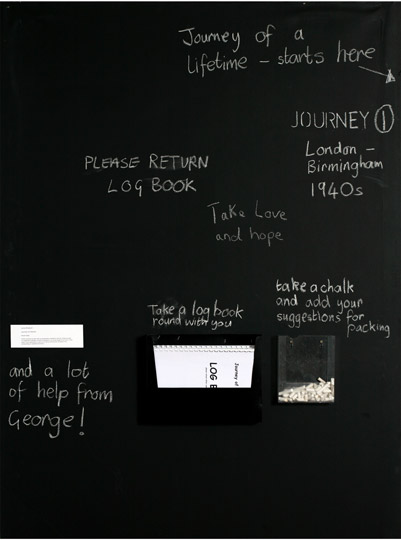 Journey of a
lifetime – starts here
JOURNEY 1
London –
Birmingham
1940s
PLEASE RETURN
LOG BOOK
Take Love
and hope
take a chalk
and add your
suggestions for
packing
Take a log book
round with you
Journey of
LOG B
and a lot
of help from
George!